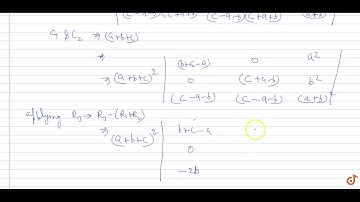 (c-a-b) (c+a+b)
C₁ & C₂ → (a+b+c)
→ (a+b+c)² | (b+c-a) 0 a² |
| 0 (c+a-b) b² |
| (c-a-b) (c-a-b) (a+b)² |
applying R₃ → R₃-(R₁+R₂)
→ (a+b+c)² | b+c-a
0
-2b